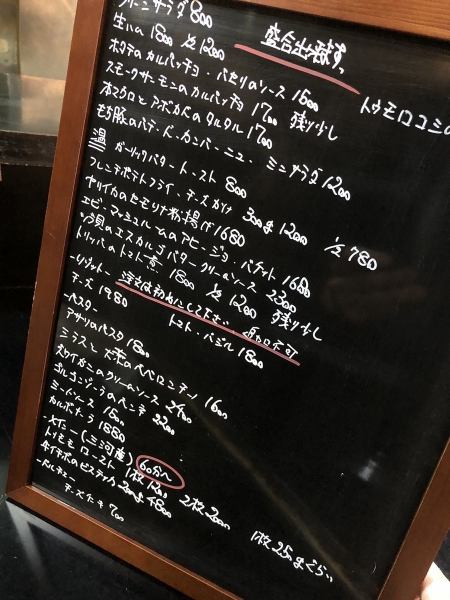 サラダ 800
盛合出来ます。
生ハム 1800 1/2 1200
ホタテのカルパッチョ・パセリのソース 1600
トウモロコシの
スモークサーモンのカルパッチョ 1700 残り少し
本マグロとアボカドのタルタル 1700
もち豚のパテ・ド・カンパーニュ・ミニサラダ 1200
温
ガーリックバタートースト 800
フレンチポテトフライ・チーズがけ 300g 1200 1/2 780
ヤリイカのセモリナ粉揚げ 1680
エビ・マッシュルームのアヒージョ・バゲット 1680
つぶ貝のエスカルゴバタークリームソース 2300
トリッパのトマト煮 1800 1/2 1200 残り少し
-リゾット- 注文は初めにして下さい。追加不可
チーズ 1980 トマト・バジル 1800
-パスタ-
アサリのパスタ 1800
シラスと 菜のペペロンチーノ 1600
ズワイガニのクリームソース 2400
ゴルゴンゾーラのペンネ 2200
ミートソース 1500
カルボナーラ 1880
-メイン- (三河産) 60分〜
トリモモロースト 1枚1200 2枚2000 1枚250gくらい
牛イチボのビステッカ 200g 4800
-ドルチェ-
チーズケーキ 700